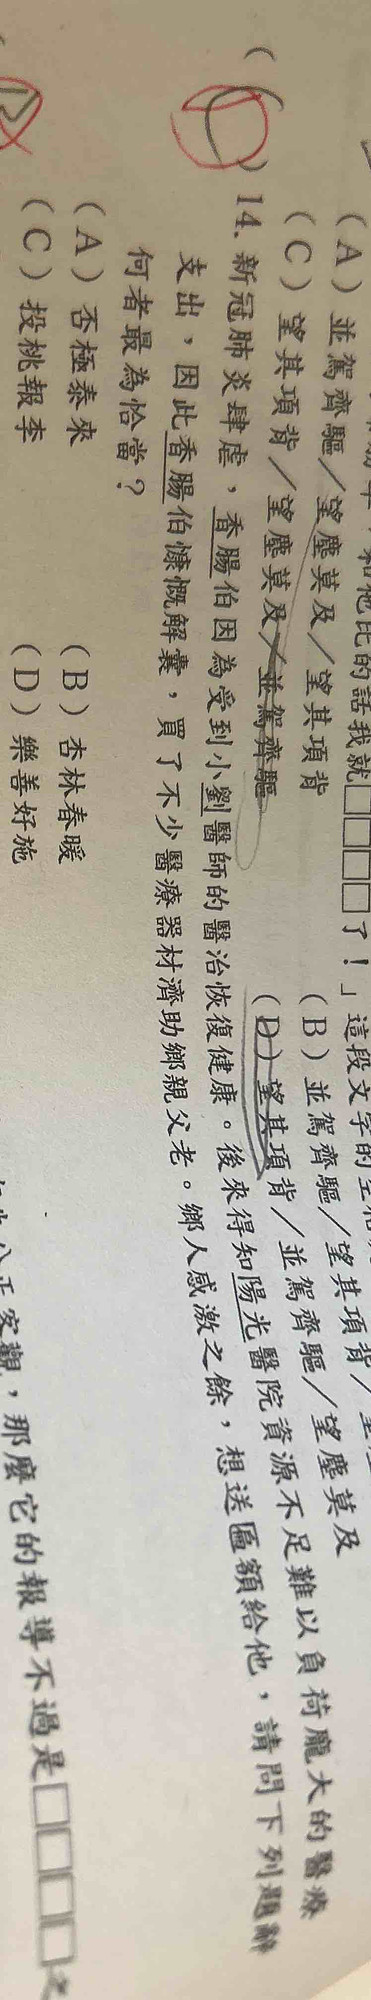 和他比的話我就□□□□了！」這段文字的空格
（A）並駕齊驅／望塵莫及／望其項背
（B）並駕齊驅／望其項背／
（C）望其項背／望塵莫及／並駕齊驅
（D）望其項背／並駕齊驅／望塵莫及
14. 新冠肺炎肆虐，香腸伯因為受到小劉醫師的醫治恢復健康。後來得知陽光醫院資源不足難以負荷龐大的醫療
支出，因此香腸伯慷慨解囊，買了不少醫療器材濟助鄉親父老。鄉人感激之餘，想送匾額給他，請問下列題辭
何者最為恰當？
（A）否極泰來
（B）杏林春暖
（C）投桃報李
（D）樂善好施
公正客觀，那麼它的報導不過是□□□□之